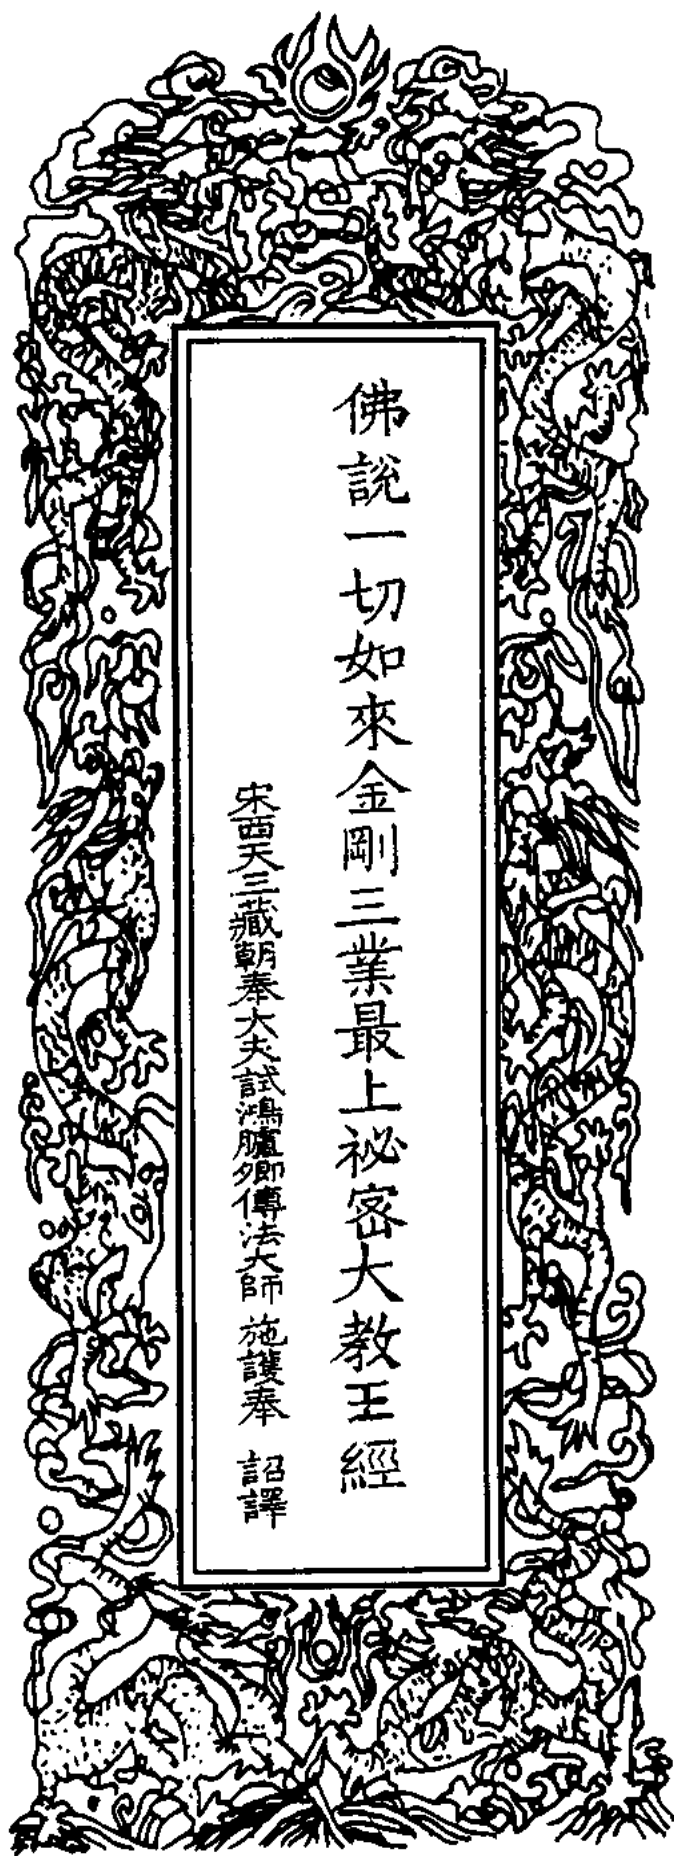 佛說一切如來金剛三業最上祕密大教王經
宋西天三藏朝奉大夫試鴻臚卿傳法大師 施護奉 詔譯